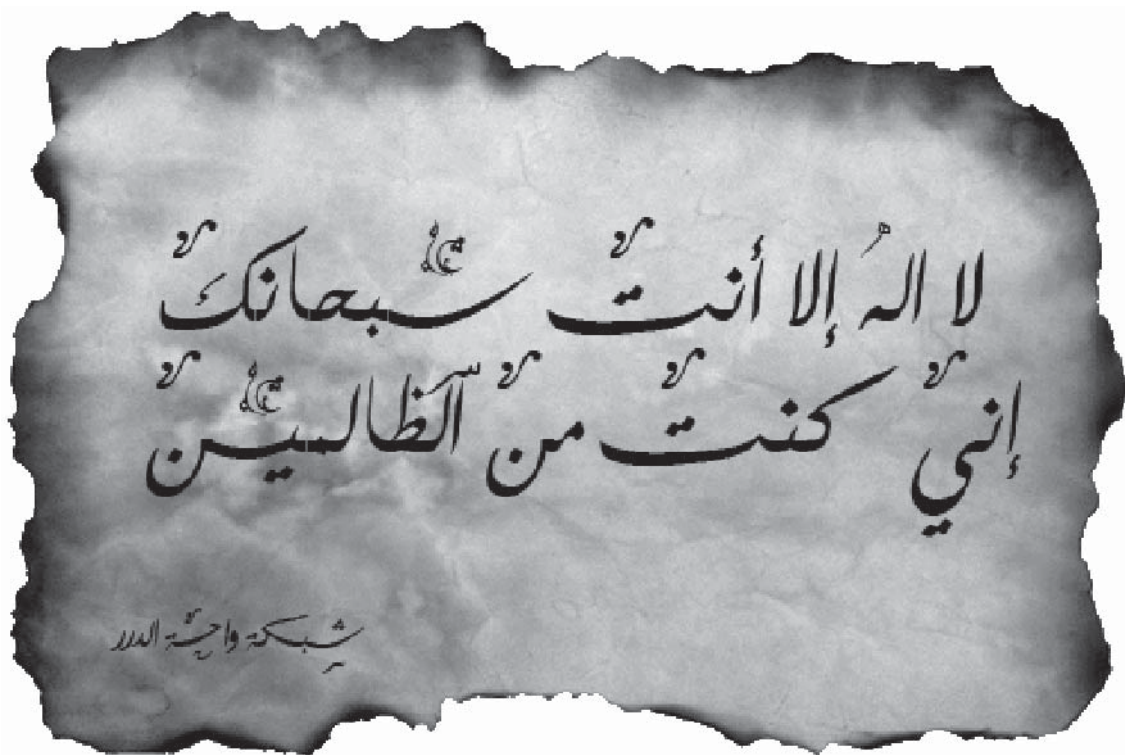 لا اله إلا أنت سبحانك
إني كنت من الظالمين
شبكة واحة الدرر